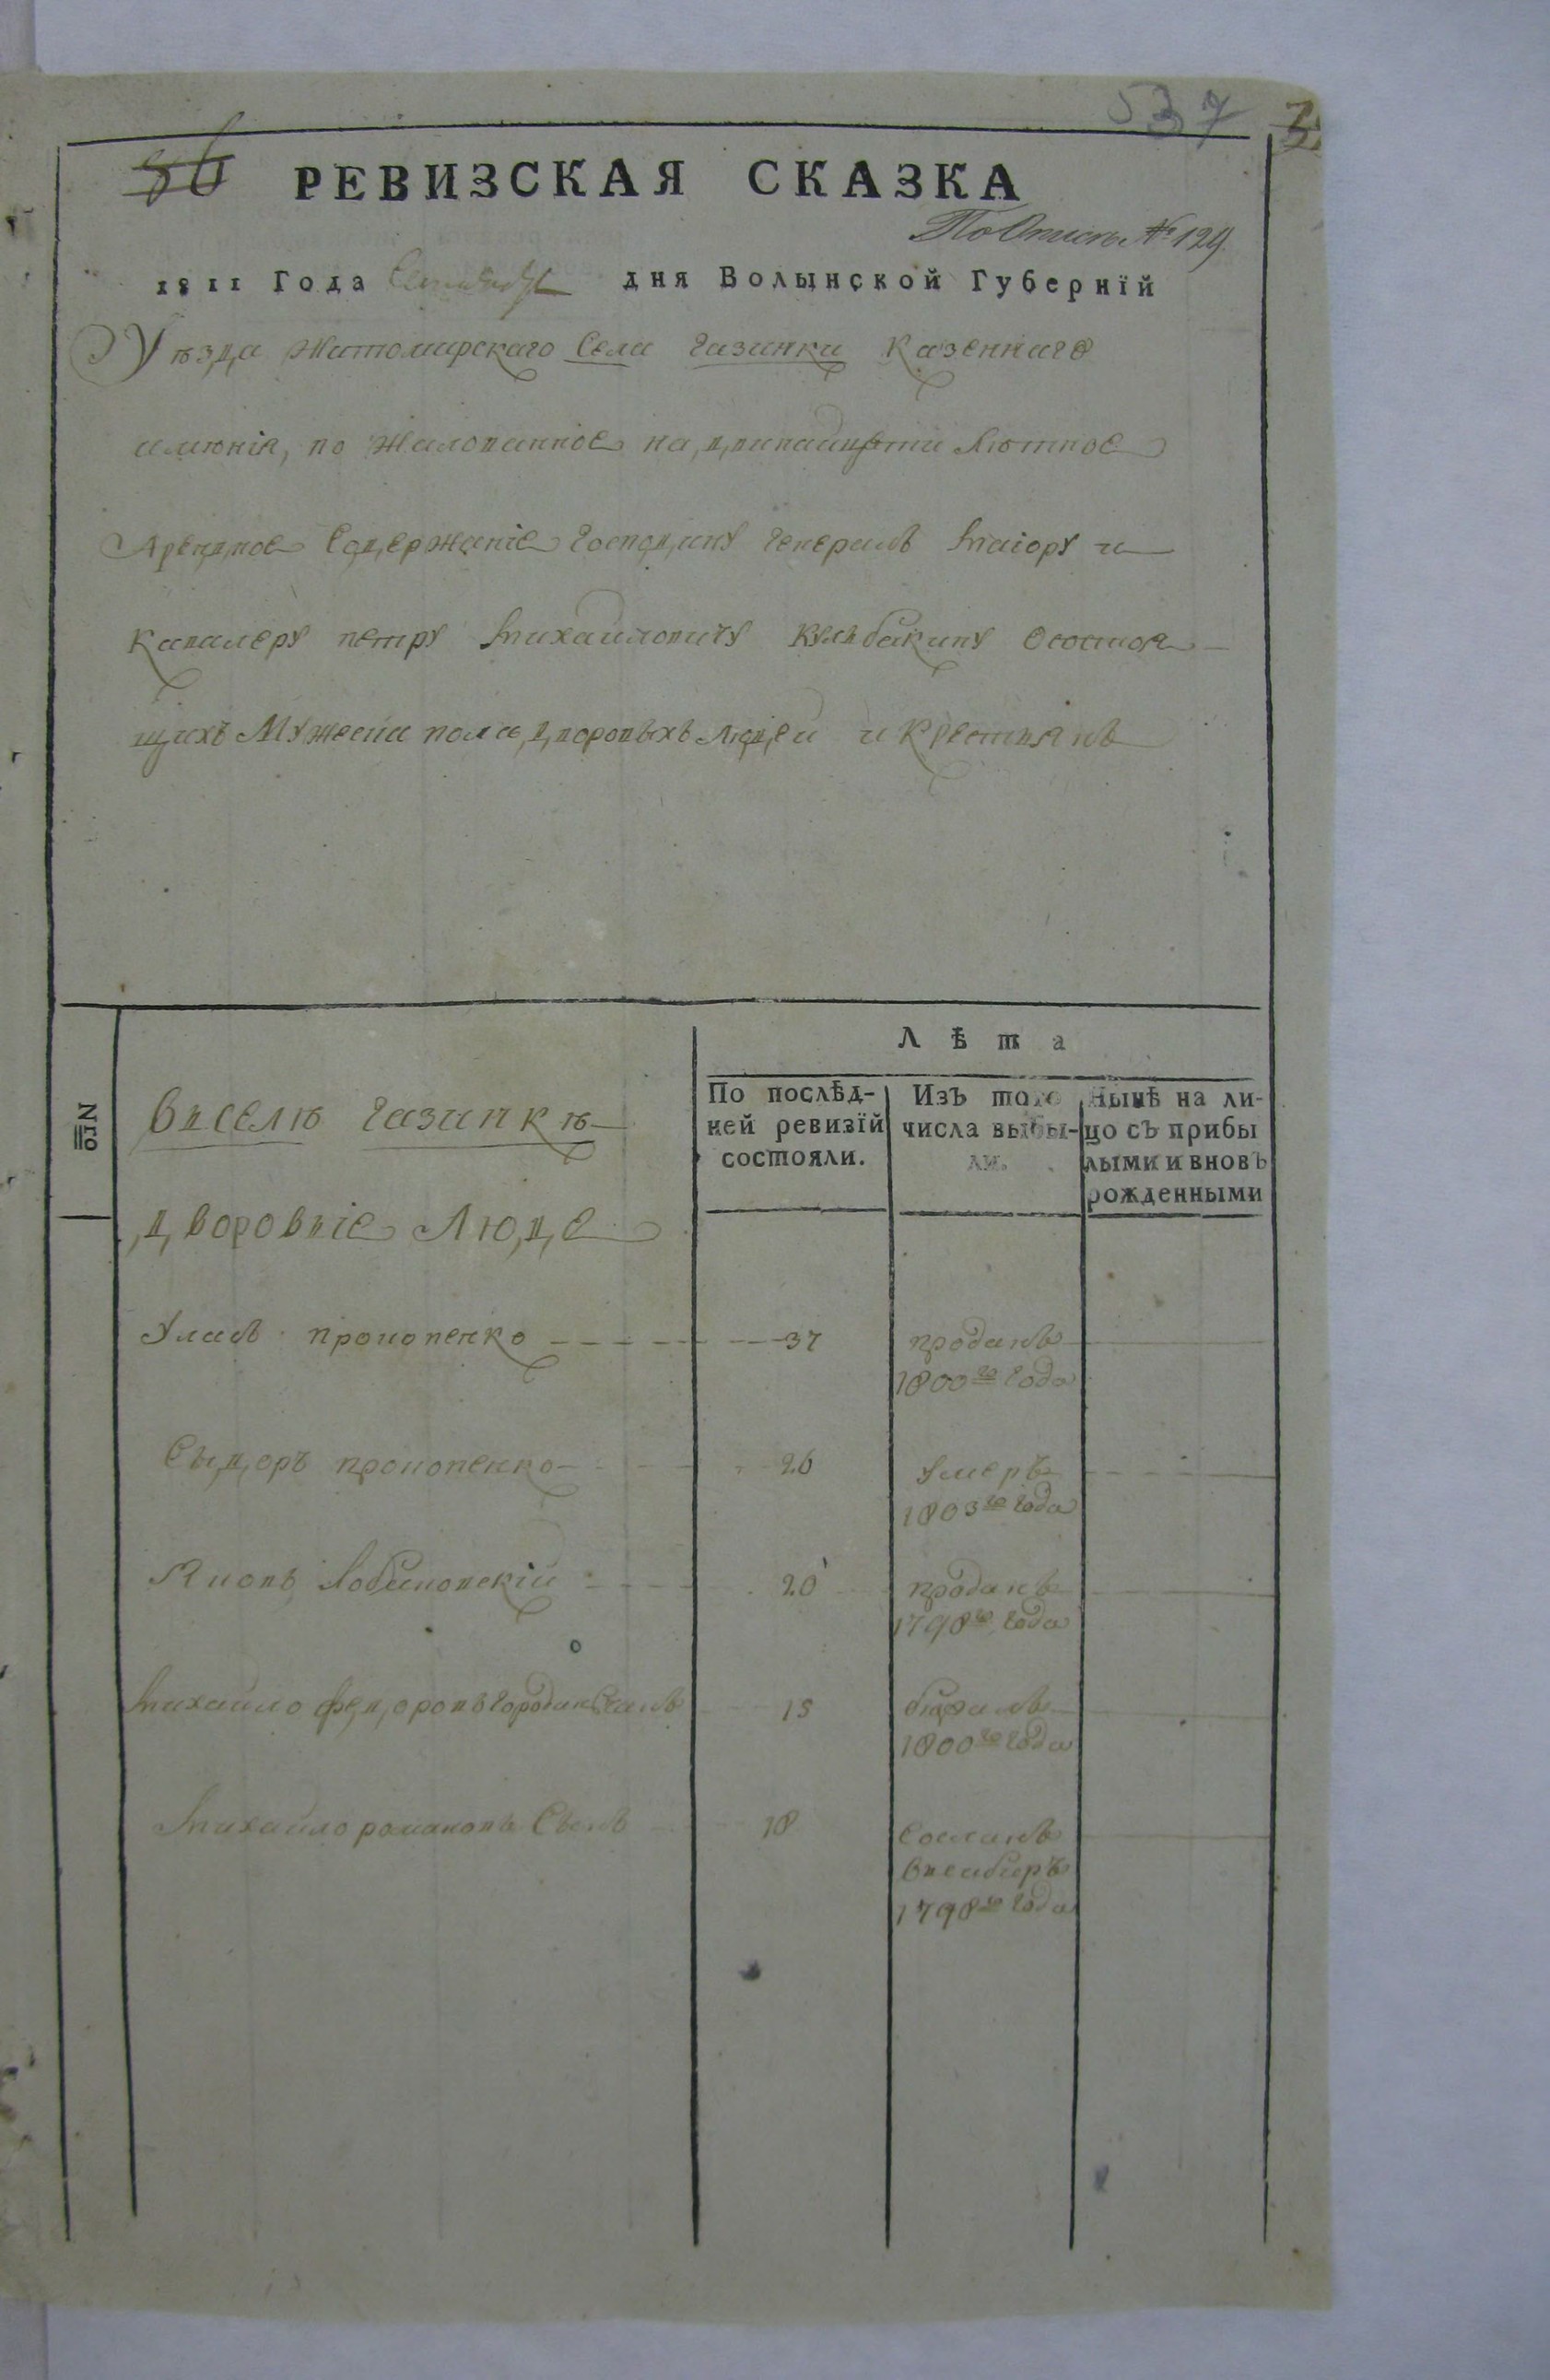 537
36
РЕВИЗСКАЯ СКАЗКА
По Описи № 129
1811 Года Сентября дня Волынской Губернїй
Уѣзда Житомирскаго Села Газинки Казеннаго
имѣнія, по жалованное на двинадцяти лѣтное
Арендное Содержаніе Господину Генералъ Маіору и
Кавалеру Петру Михайловичу Кульбакину Осостоя-
щихъ Мужеска пола дворовыхъ людей и крестьянъ
Nго
Лѣта
По послѣд-
ней ревизїй
состояли.
Изъ того
числа выбы-
ли.
Нынѣ на ли-
цо съ прибы
лыми и вновъ
рожденными
Вселѣ Газинкѣ
дворовніе Люде
Уласъ Прокопенко 37 проданъ
1800го года
Сыдоръ Прокопенко 26 умеръ
1803го года
Яковъ 20 проданъ
1798го года
Михайло Федоровъ 15
1800го года
Михайло Романовъ Сынъ 18 Сосланъ
Всибиръ
1798го года